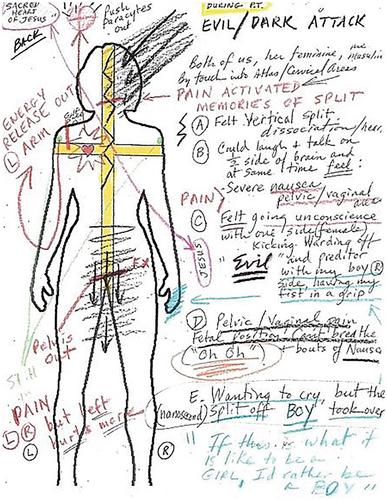 SACRED
HEART OF
JESUS
BACK
Push
Paracytes
Out
DURING P.T.
EVIL/DARK ATTACK
Both of us, her feminine, me masculin
By touch into Atlas/Cervical Areas
PAIN ACTIVATED
MEMORIES OF SPLIT
A Felt Vertical Split
dissociation/her,
B Could laugh + talk on
½ side of brain and
at same time feel:
PAIN
Severe nausea
pelvic/vaginal
C Felt going unconscience
with one side (female)
Kicking Warding off
"Evil" and preditor
with my boy R
side, having my
fist in a grip
D Pelvic/Vaginal pain
Fetal Position Cant breathe
"Oh Oh" + bouts of Nausa
E. Wanting to cry, but the
(nanosecond) Split off "BOY" took over
"If this is what it
is like to be a
GIRL, I'd rather be
a BOY"
ENERGY
RELEASE OUT
L ARM
JESUS
Pelvis
Out
PAIN
L R but left
hurts more
L
R